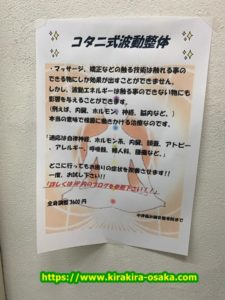 コタニ式波動整体
・マッサージ、矯正などの触る技術は触れる事の
できる物にしか効果が出すことができません。
しかし、波動エネルギーは触る事のできない物にも
影響を与えることができます。
(例えば、内臓、ホルモン、神経、脳内など。)
本当の意味で根本に働きかける治療なのです。
「適応は自律神経、ホルモン系、内臓、頭蓋、アトピー
、アレルギー、呼吸器、婦人科、腫瘍など。」
どこに行っても
一度、お試し下さい!!
「詳しくはHP内のブログを参照下さい!!」
全身調整 3600円
https://www.kirakira-osaka.com/